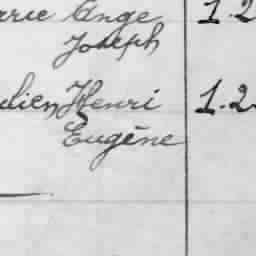 Ange 1.2
Joseph
Henri 1.2
Eugène